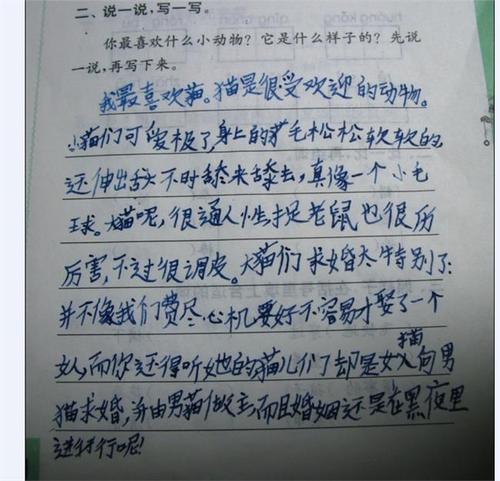 二、说一说，写一写。
你最喜欢什么小动物？它是什么样子的？先说
一说，再写下来。
我最喜欢猫。猫是很受欢迎的动物。
小猫们可爱极了，身上的毛松松软软的，
还伸出舌头不时舔来舔去，真像一个小毛
球。大猫呢，很通人性，捉老鼠也很历
厉害，不过很调皮。大猫们求婚太特别了：
并不像我们费尽心机要好不容易才娶了一个
女人，而你还得听她的，猫儿们却是女猫向男
猫求婚，并由男猫做主，而且婚姻还是在黑夜里
进行呢！